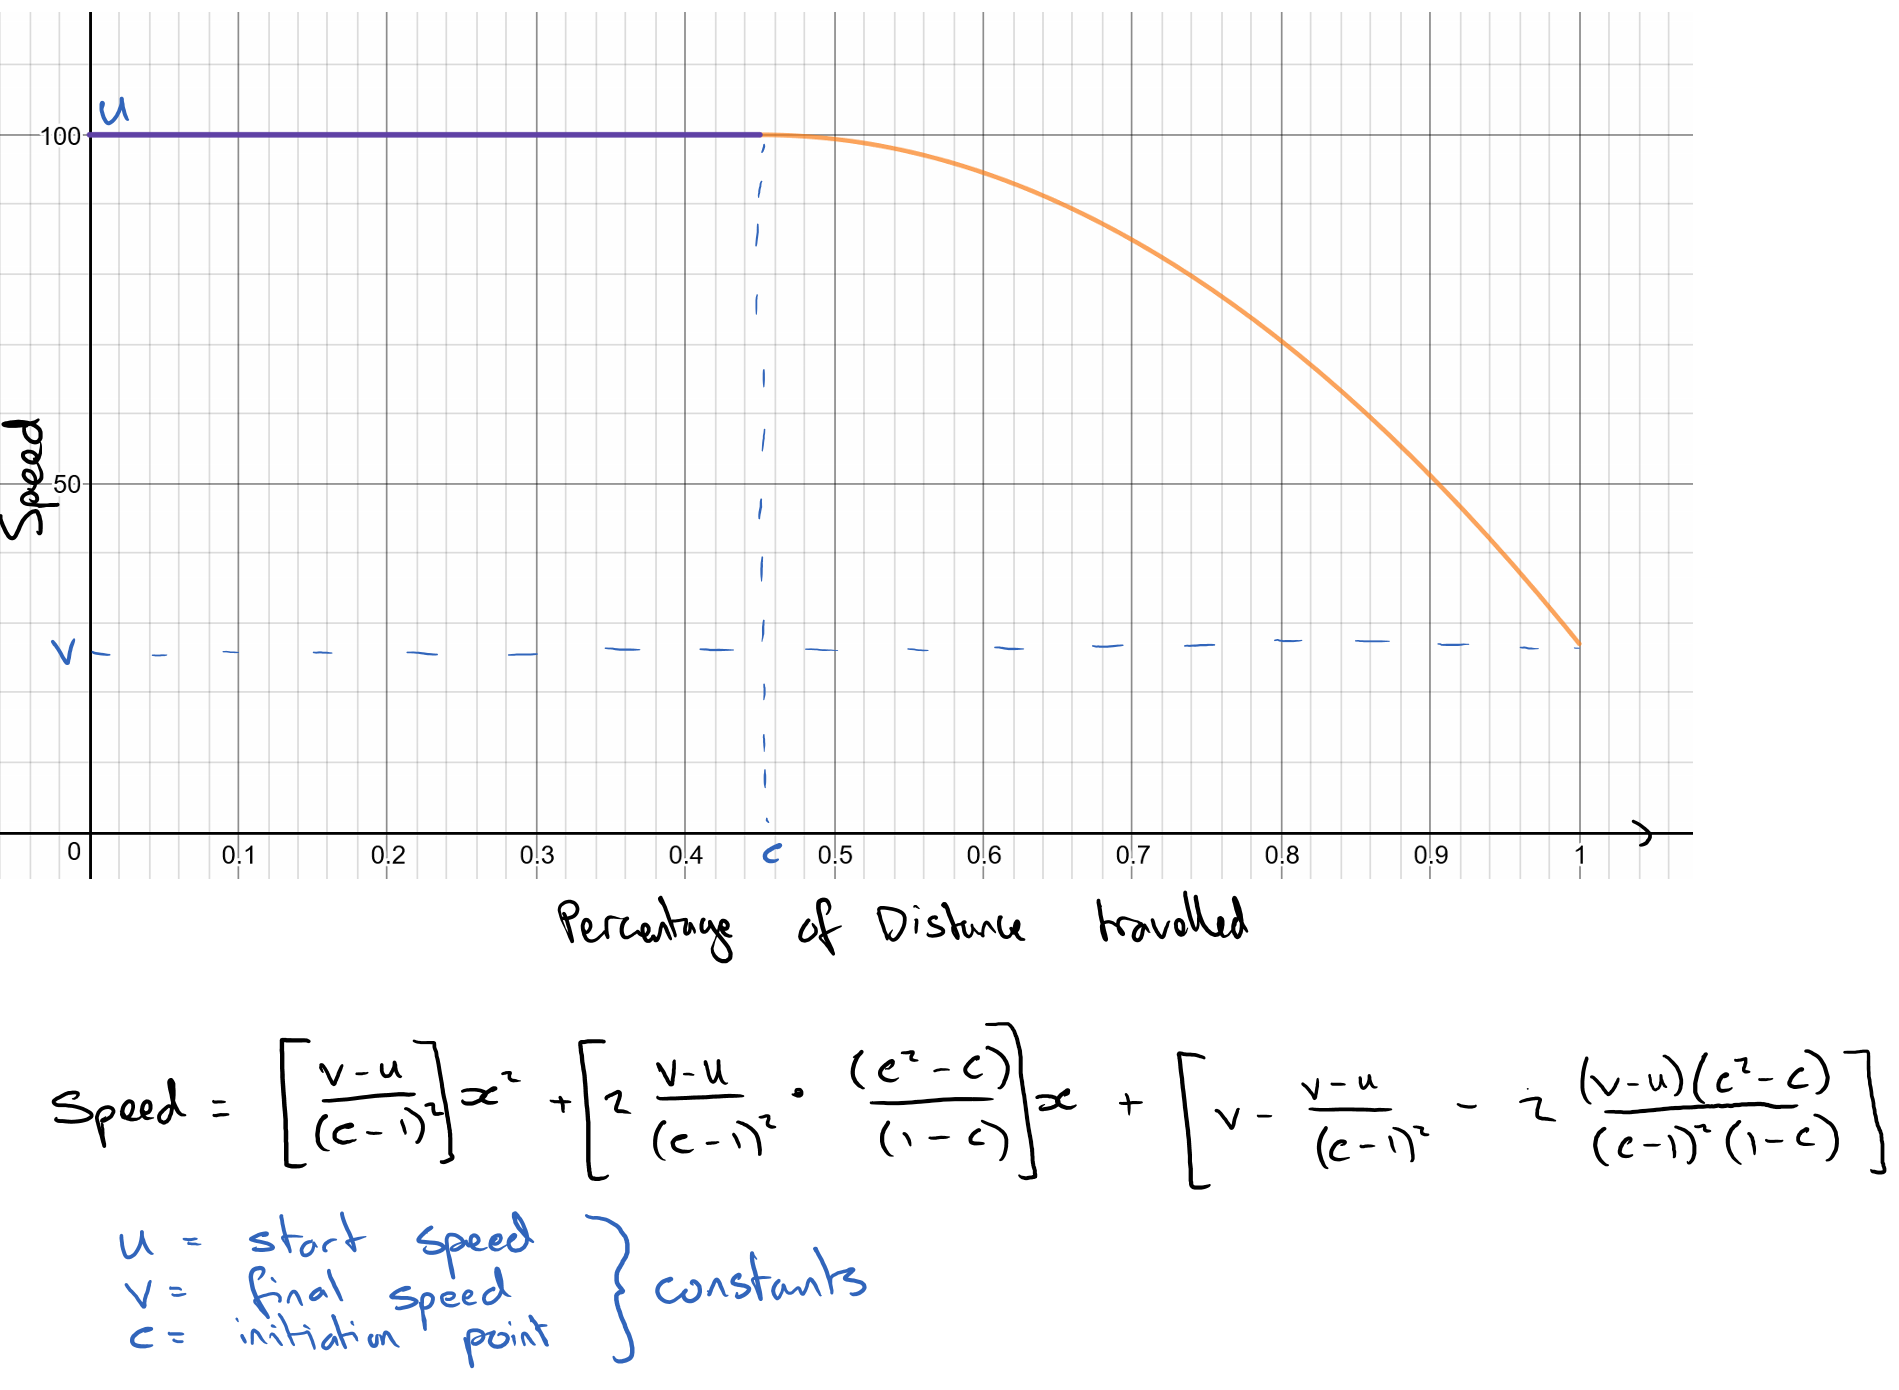 u
100
Speed
50
v
0 0.1 0.2 0.3 0.4 c 0.5 0.6 0.7 0.8 0.9 1
Percentage of Distance travelled
Speed = [(v-u)/(c-1)²]x² + [2 (v-u)/(c-1)² · (c²-c)/(1-c)]x + [v - (v-u)/(c-1)² - 2 (v-u)(c²-c)/(c-1)²(1-c)]
u = start speed
v = final speed } constants
c = initiation point